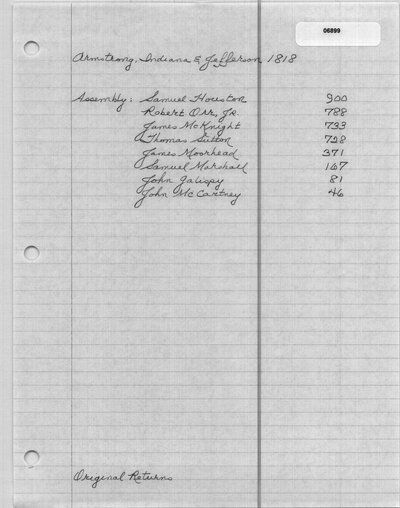 06899
Armstrong, Indiana & Jefferson 1818
Assembly: Samuel Houston 900
Robert Orr, Jr. 788
James McKnight 733
Thomas Sutton 728
James Moorhead 371
Samuel Marshall 167
John Galispy 81
John McCartney 46
Original Returns